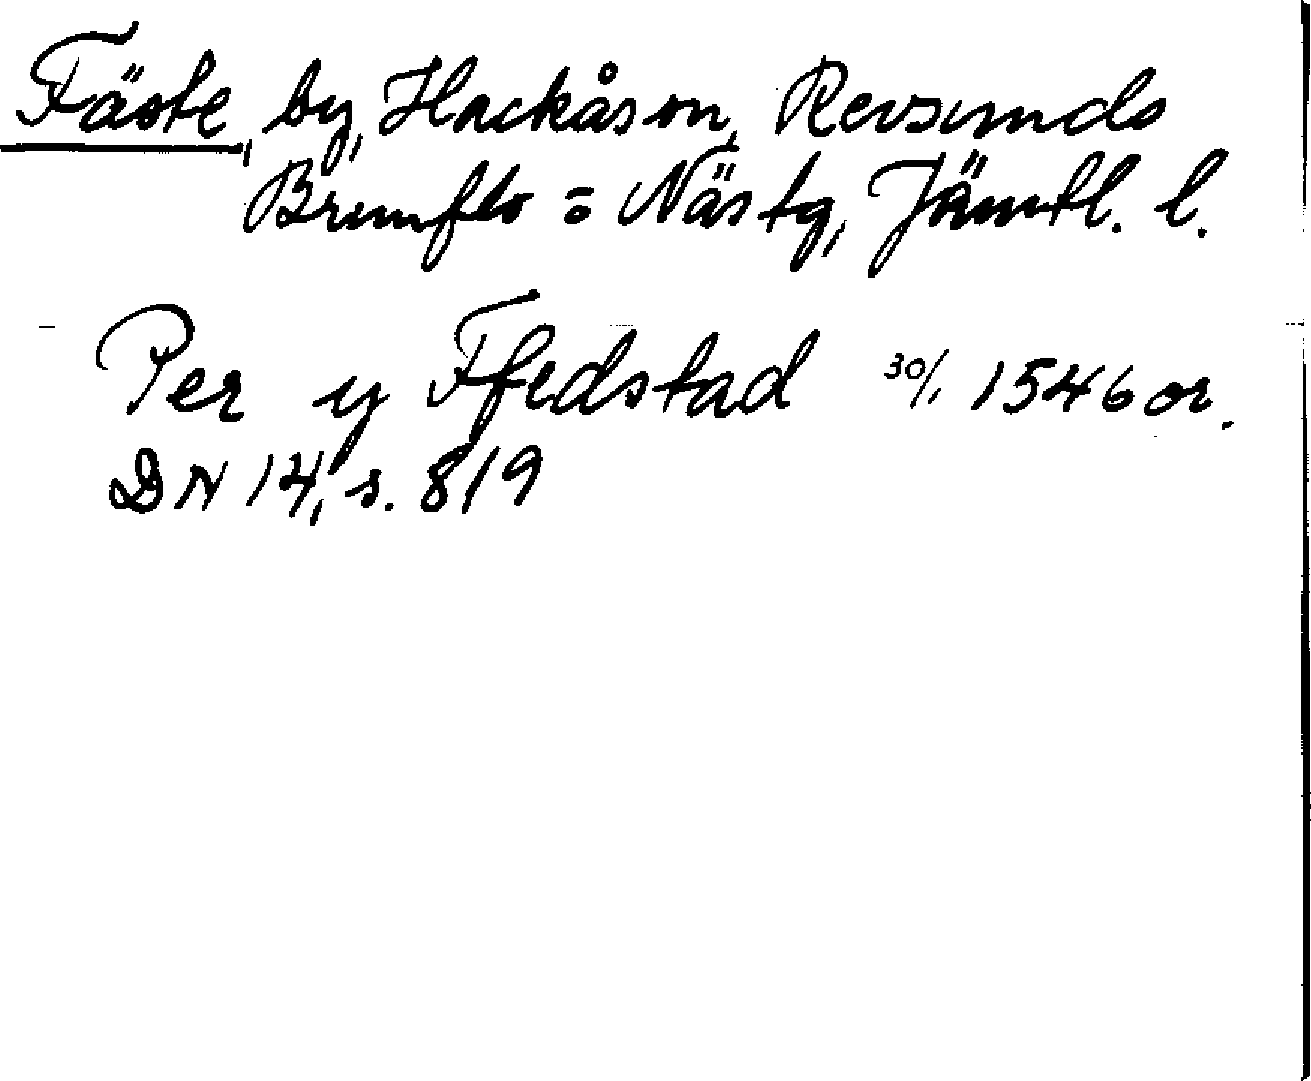 Fäste, by, Hackås sn, Revsunds
Brunflo = Näs tg, Jämtl. l.
Per y Ffedstad 30/1 1546 or.
DN 14, s. 819